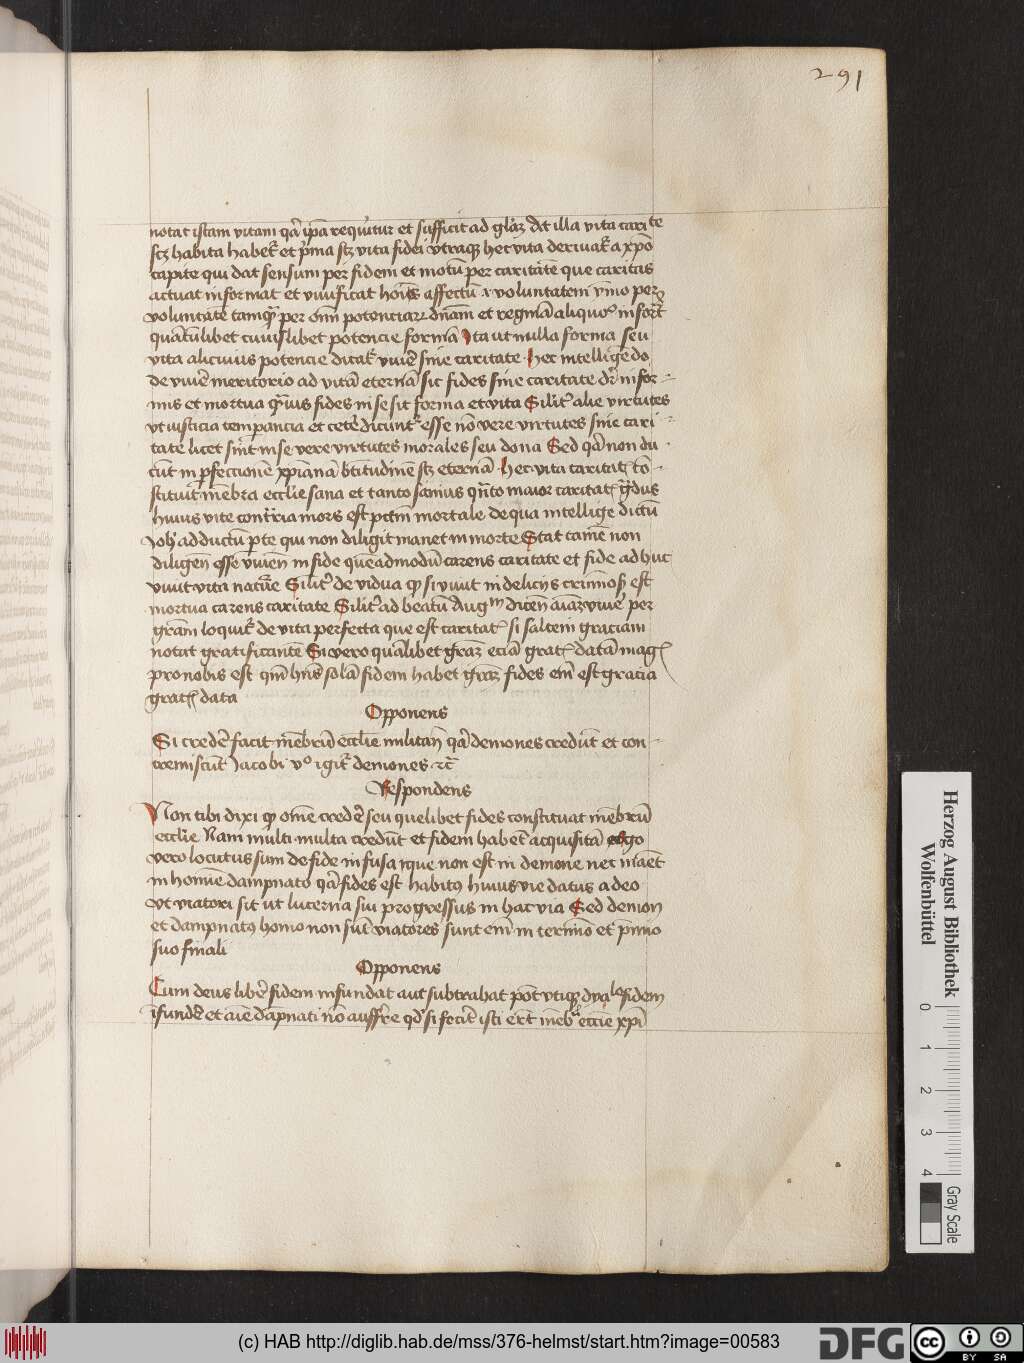 291
notat istam vitam qa ipa requirit et sufficit ad glaz dat illa vita carite
scz habita habet et pma scz vita fidei vtraq hec vita derivat a xpo
capite qui dat sensum per fidem et motu per caritate que caritas
actuat informat et viuificat hois affectu voluntatem ymo per
voluntate tamq per omn potenciaz dnam et regnia aliquo
qua libet cuiuslibet potencie forma Ita ut nulla forma seu
vita alicuius potencie dicat vive sine caritate hec intelligedo
de vive meritorio ad vita eterna sic fides sine caritate dr infor
mis et mortua qvis fides in se sit forma et vita Silit alie virtutes
vt iusticia tempancia et cete dicunt esse no vere virtutes sine cari
tate licet sint in se vere virtutes morales seu dona Sed qa non du
cut in pfeccione xpiana btitudine scz eterna hec vita caritat co
stituit mebra ecclie sana et tanto sanius qnto maior caritat gdus
huius vite contria mors est pctm mortale de qua intellige dictu
Joh adductu pte qui non diligit manet in morte Stat tame non
diligen esse vivent in fide queadmodu carens caritate et fide adhuc
vivit vita nature Silit de vidua qp si vivit in delicijs criminos est
mortua carens caritate Silit ad beatu Augm dicen aiaz vive per
gram loquit de vita perfecta que est caritat si saltem graciam
notat gratificante Si vero qualibet graz ecia grat data mag
pro nobis est qm hns sola fidem habet graz fides em est gracia
grat data
Opponens
Si crede facit mebru ecclie militan qa demones credut et con
tremiscut Jacobi 2o igit demones etc
Respondens
Non tibi dixi qp ome crede seu quelibet fides constituat mebru
ecclie Nam multi multa credut et fidem habet acquisita ego
vero locutus sum de fide infusa que non est in demone nec maet
in homie dampnato qa fides est habitus huius vie datus a deo
vt viatori sit ut lucerna sui progressus in hac via Sed demon
et dampnatus homo non sut viatores sunt em in termio et pmio
suo finali
Opponens
Cum deus libe fidem infundat aut subtrahat pot vtiq dyabo fidem
ifunde et aie dapnati no auffre qd si fecit isti erit meb ecclie xpi
Herzog August Bibliothek
Wolfenbüttel
0 1 2 3 4
Gray Scale
(c) HAB http://diglib.hab.de/mss/376-helmst/start.htm?image=00583
DFG
cc
BY SA